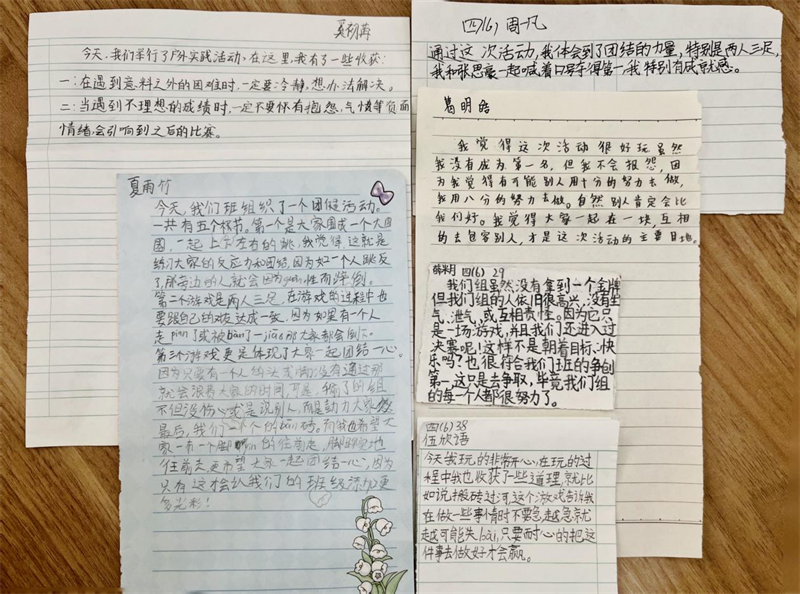 今天,我们举行了户外实践活动,在这里,我有了一些收获:
一:在遇到意料之外的困难时,一定要冷静,想办法解决。
二:当遇到不理想的成绩时,一定不要怀有抱怨,气愤等负面
情绪,会引响到之后的比赛。
四(6) 周一凡
通过这次活动,我体会到了团结的力量,特别是两人三足,
我和张思豪一起喊着口号夺得第一,我特别有成就感。
葛明皓
我觉得这次活动很好玩虽然
我没有成为第一名,但我不会报怨,因
为我觉得有可能别人用十分的努力去做,
我用八分的努力去做。自然别人肯定会比
我们好。我觉得大家一起在一块,互相
的去包容别人,才是这次活动的主要目地。
夏雨竹
今天,我们班组织了一个团健活动。
一共有五个环节。第一个是大家围成一个大
圆,一起上下左右的跳,我觉得这就是
练习大家的反应力和团结,因为如一个人跳反
了,那旁边的人就会因为性而摔倒。
第二个游戏是两人三足,在游戏的过程中也
要跟自己的队友达成一致,因为如果有一个人
走了或被bàn了一jiāo那大家都会倒下。
第三个游戏更是体现了大家一起团结一心。
因为只要有一个人没有通过那
就会浪费大家的时间,可是输了的组
不但没伤心或是说别人,而是
最后,我们
家一步一个脚yìn的往前走,脚踏实地
往前走更希望大家一起团结一心,因为
只有这才会让我们的班级添加更
多光彩!
四(6) 29
我们组虽然没有拿到一个金牌
但我们组的人依旧很高兴,没有生
气、泄气,或互相责怪。因为它只
是一场游戏,并且我们还进入过
决赛呢!这样不是朝着目标:快
乐吗?也很符合我们班的争创
第一,这只是去争取,毕竟我们组
的每一个人都很努力了。
四(6)38
伍欣语
今天我玩的非常开心,在玩的过
程中我也收获了一些道理,就比
如说搬砖过河,这个游戏告诉我
在做一些事情时不要急,越急就
越可能失bài,只要耐心的把这
件事去做好才会赢。